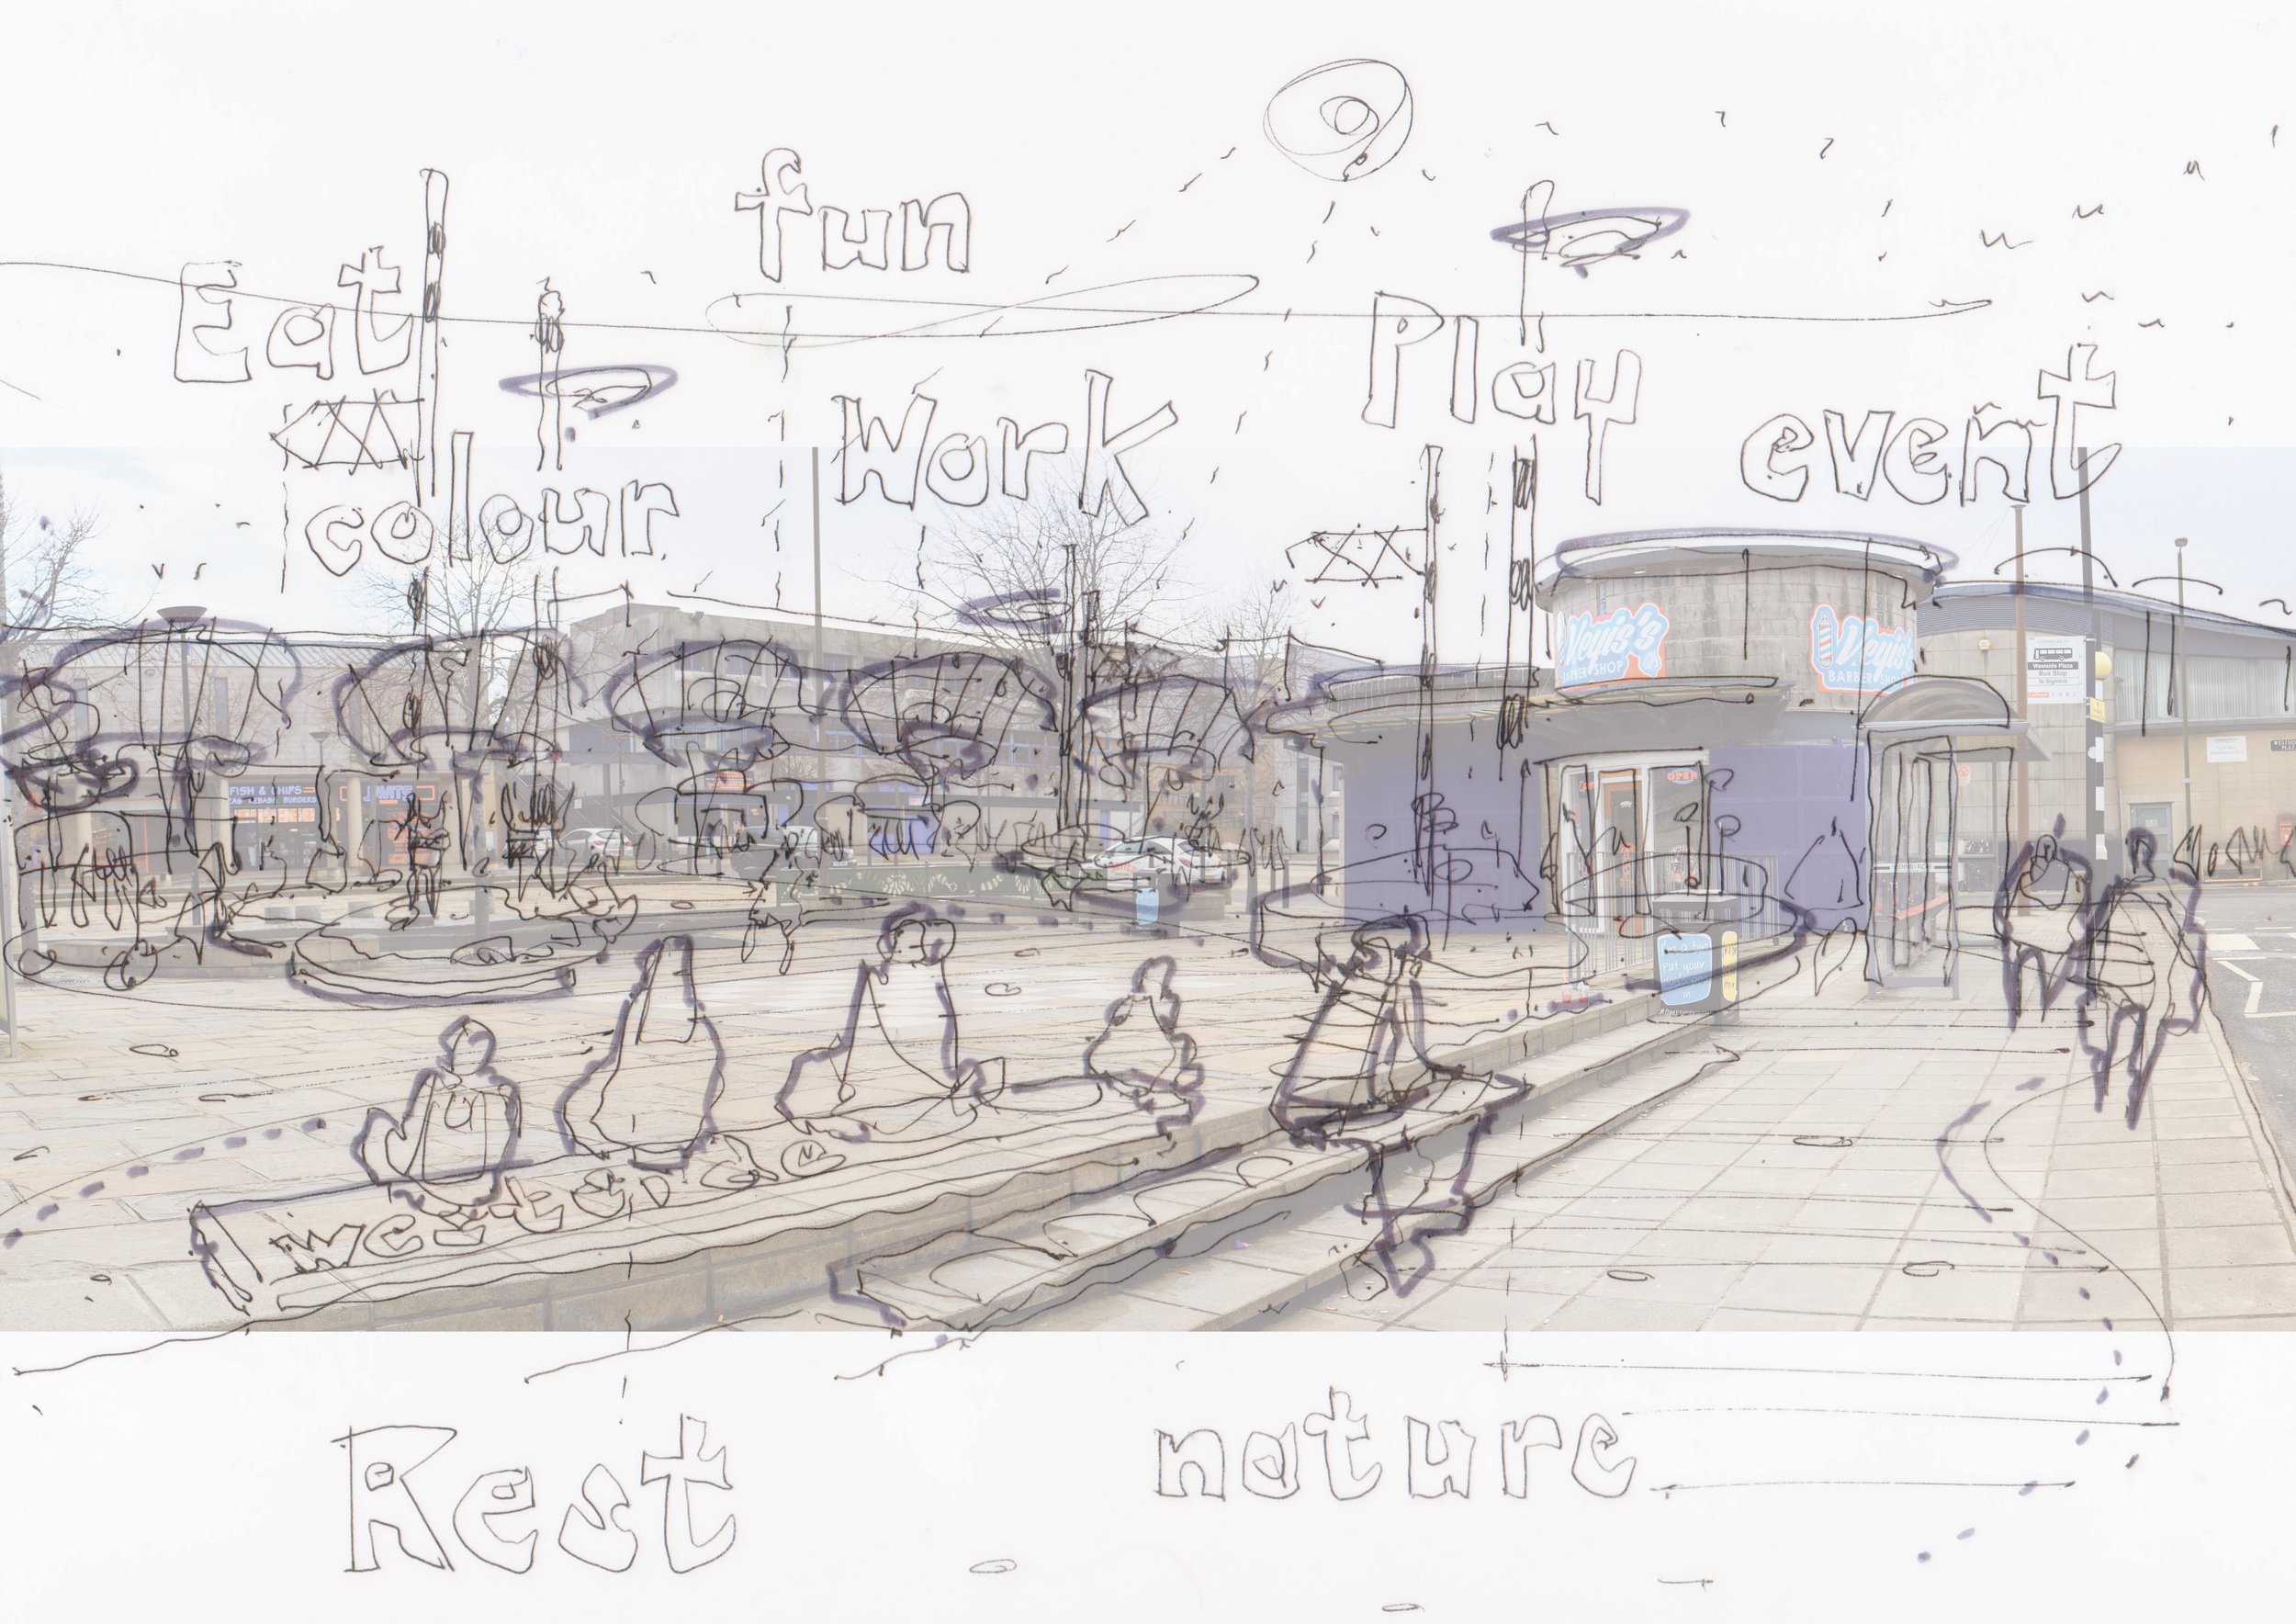 fun
Eat
Play
Work
event
colour
Veyis's
BARBER SHOP
Veyis's
BARBER SHOP
Westside Plaza
Bus Stop
FISH & CHIPS
KEBABS BURGERS
OPEN
Put your
in
Rest
nature